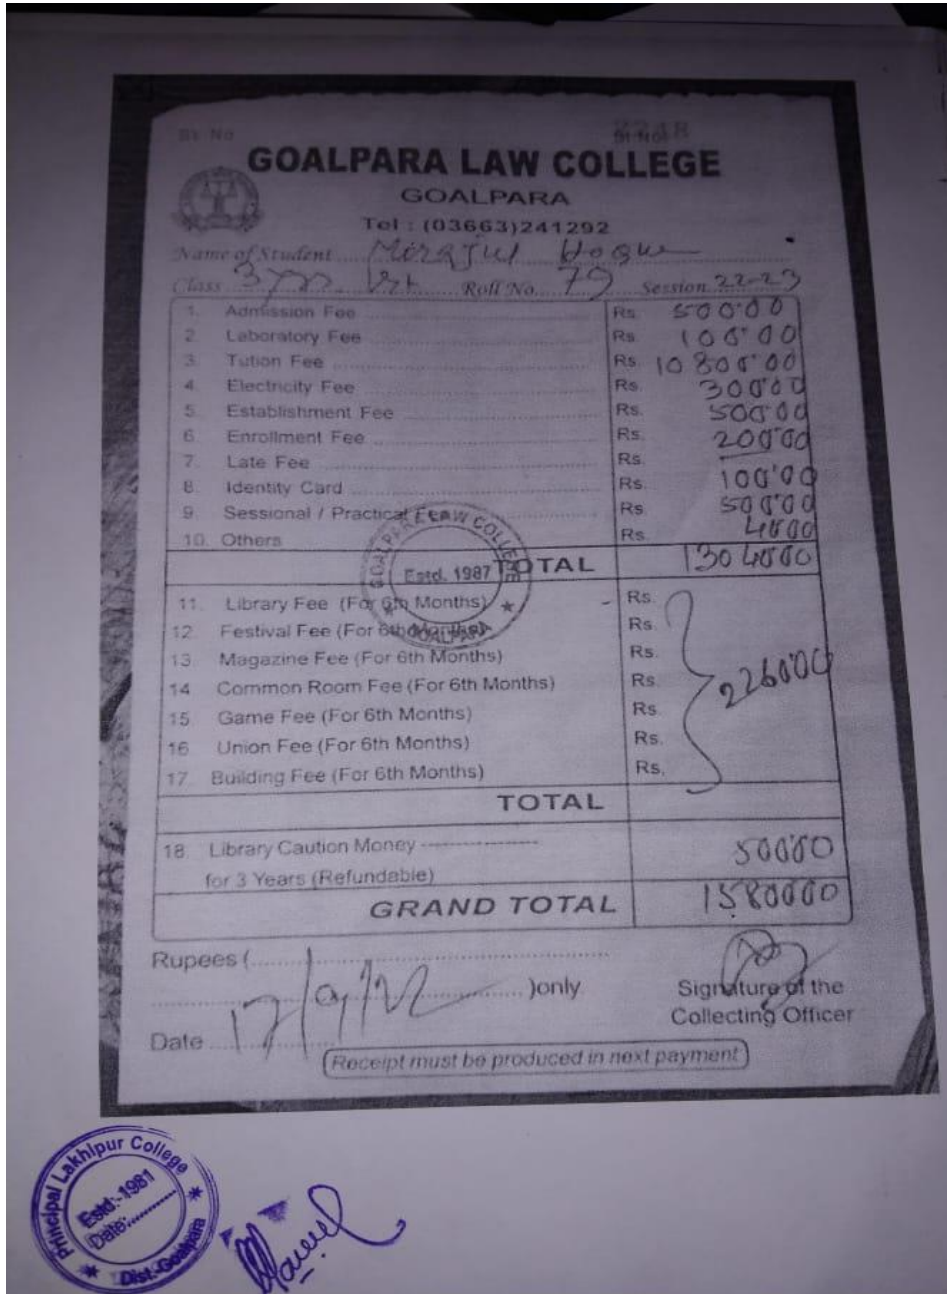 Sl. No. 2248
GOALPARA LAW COLLEGE
GOALPARA
Tel : (03663)241292
Name of Student Mirajul Hoque
Class 3 yrs. Roll No. 79 Session 22-23
1. Admission Fee Rs. 500'00
2. Laboratory Fee Rs. 100'00
3. Tution Fee Rs. 10800'00
4. Electricity Fee Rs. 300'00
5. Establishment Fee Rs. 500'00
6. Enrollment Fee Rs. 200'00
7. Late Fee Rs.
8. Identity Card Rs. 100'00
9. Sessional / Practical Rs. 500'00
10. Others Rs. 40'00
TOTAL 13040'00
11. Library Fee (For 6th Months) Rs.
12. Festival Fee (For 6th Months) Rs.
13. Magazine Fee (For 6th Months) Rs.
14 Common Room Fee (For 6th Months) Rs.
15. Game Fee (For 6th Months) Rs.
16 Union Fee (For 6th Months) Rs.
17. Building Fee (For 6th Months) Rs.
2260'00
TOTAL
18. Library Caution Money ----------------- 500'00
for 3 Years (Refundable)
GRAND TOTAL 15800'00
Rupees (
)only
Signature of the
Collecting Officer
Date 17/9/22
Receipt must be produced in next payment
GOALPARA LAW COLLEGE
Estd. 1987
GOALPARA
Principal Lakhipur College
Estd.-1981
Date:
Dist.-Goalpara